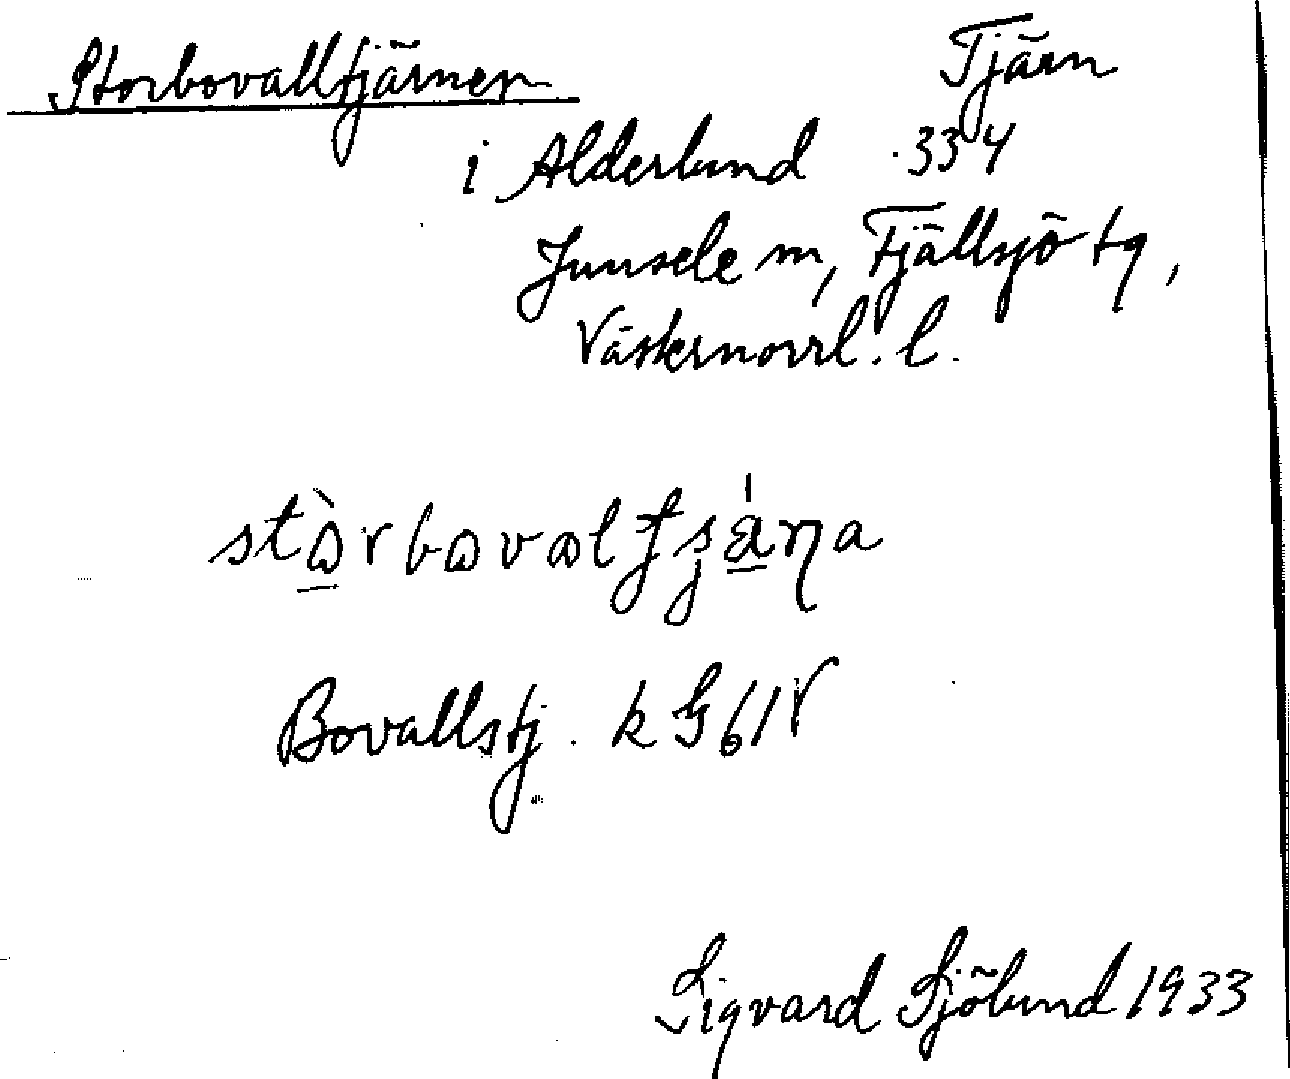 Storbovalltjärnen Tjärn
i Alderlund 334
Junsele sn, Fjällsjö tg,
Västernorrl. l.
Bovallstj. k G 61 V
Sigvard Sjölund 1933